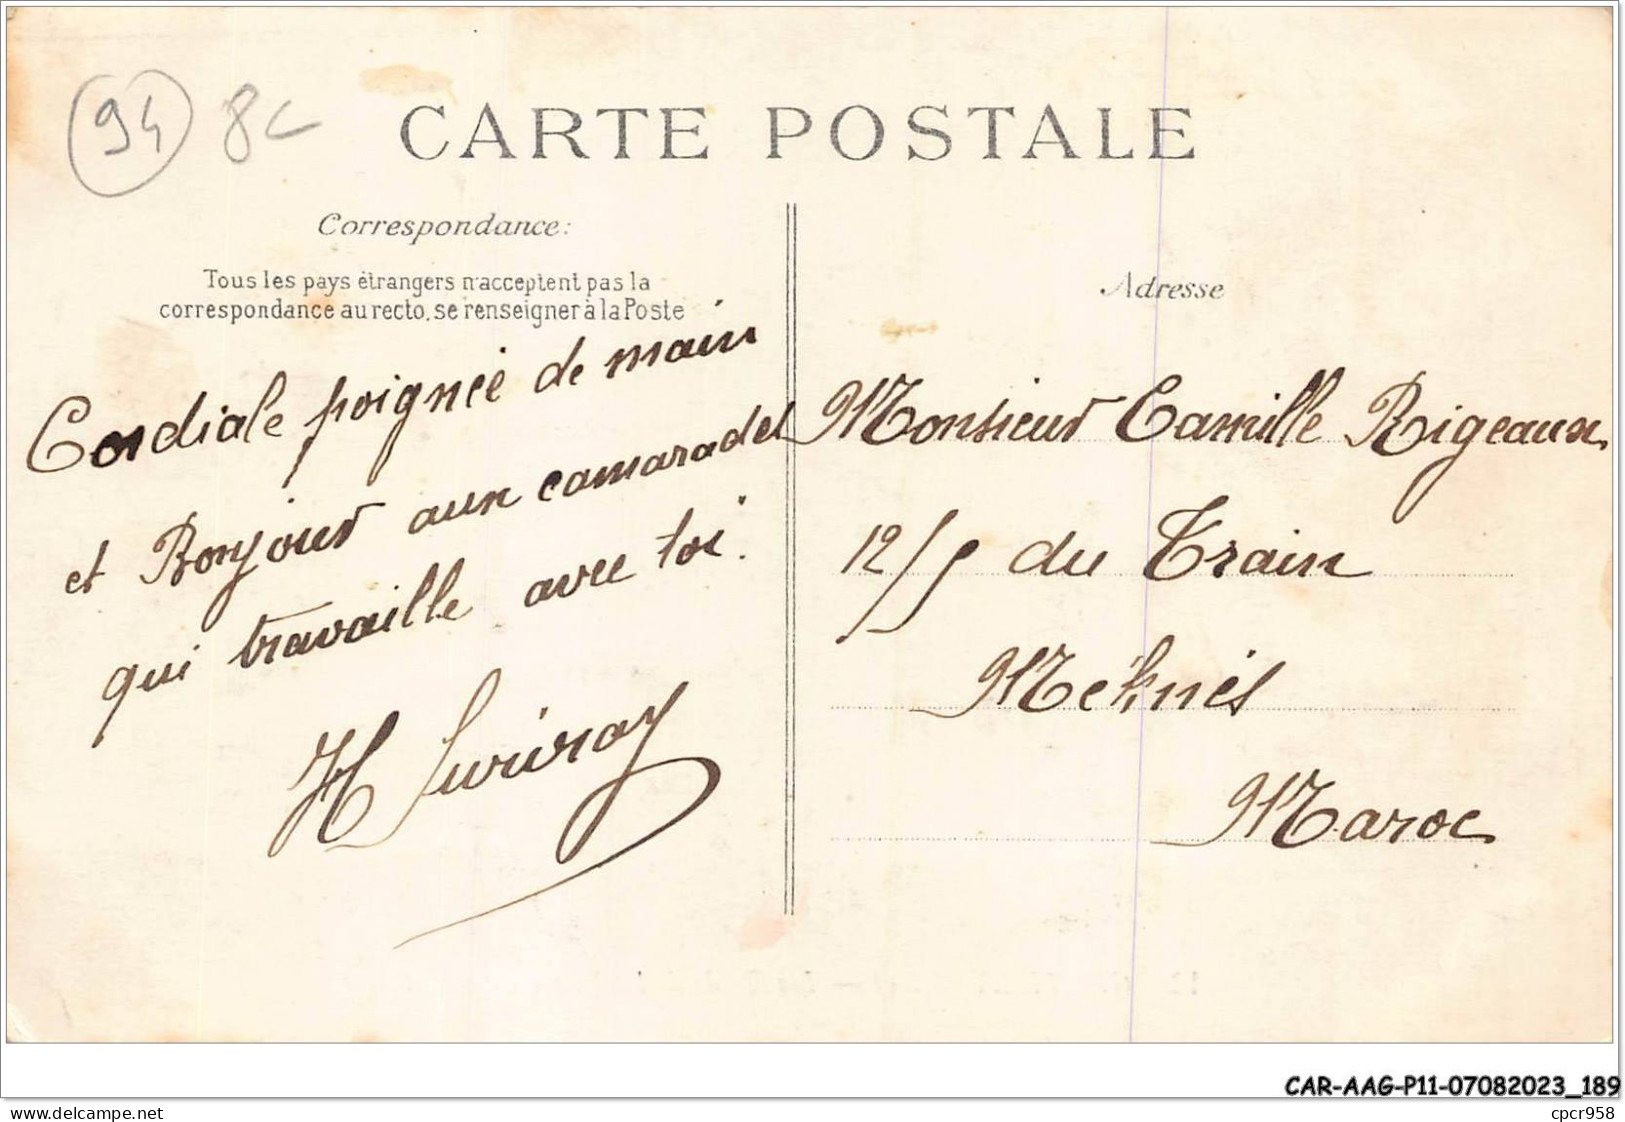 94 8c
CARTE POSTALE
Correspondance:
Tous les pays étrangers n'acceptent pas la
correspondance au recto, se renseigner à la Poste
Cordiale poignée de main
et Bonjour aux camarades
qui travaille avec toi.
H
Adresse
Monsieur Camille Rigeaux
12/5 du Train
Méknès
Maroc
CAR-AAG-P11-07082023_189
www.delcampe.net
cpcr958